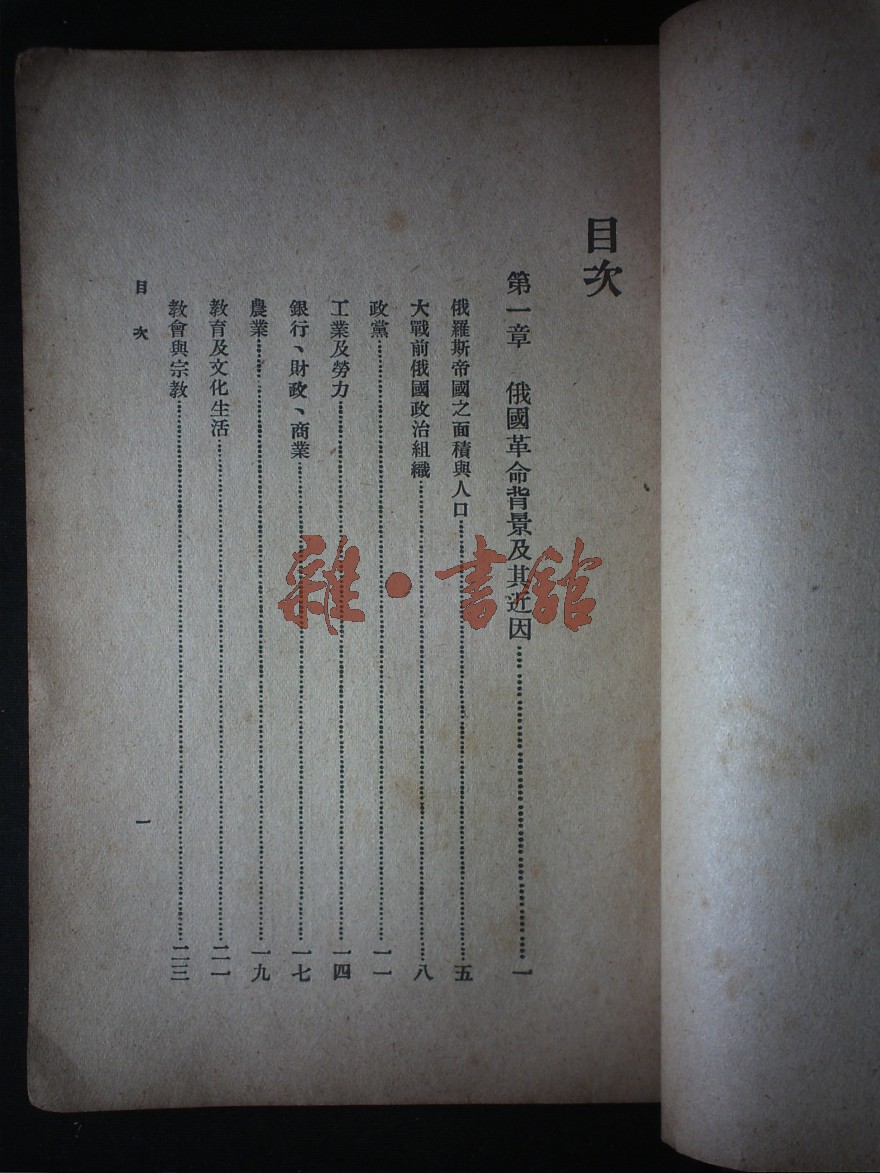 目次
第一章　俄國革命背景及其近因…………一
俄羅斯帝國之面積與人口…………五
大戰前俄國政治組織…………八
政黨…………一一
工業及勞力…………一四
銀行、財政、商業…………一七
農業…………一九
教育及文化生活…………二一
教會與宗教…………二三
目次　一
雜·書館